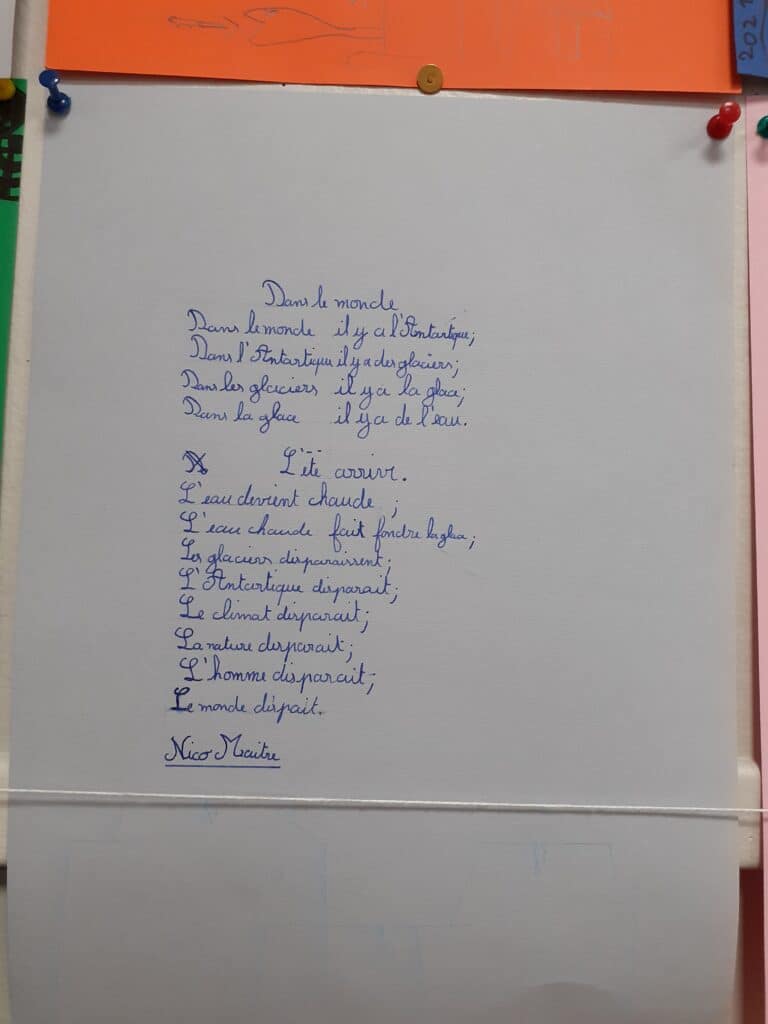 2021
Dans le monde
Dans le monde il y a l'Antartique;
Dans l'Antartique il y a des glaciers;
Dans les glaciers il y a la glace;
Dans la glace il y a de l'eau.
L'été arrive.
L'eau devient chaude ;
L'eau chaude fait fondre la glace;
Les glaciers disparaissent;
L'Antartique disparait;
Le climat disparait;
La nature disparait;
L'homme disparait;
Le monde dispait.
Nico Maitre